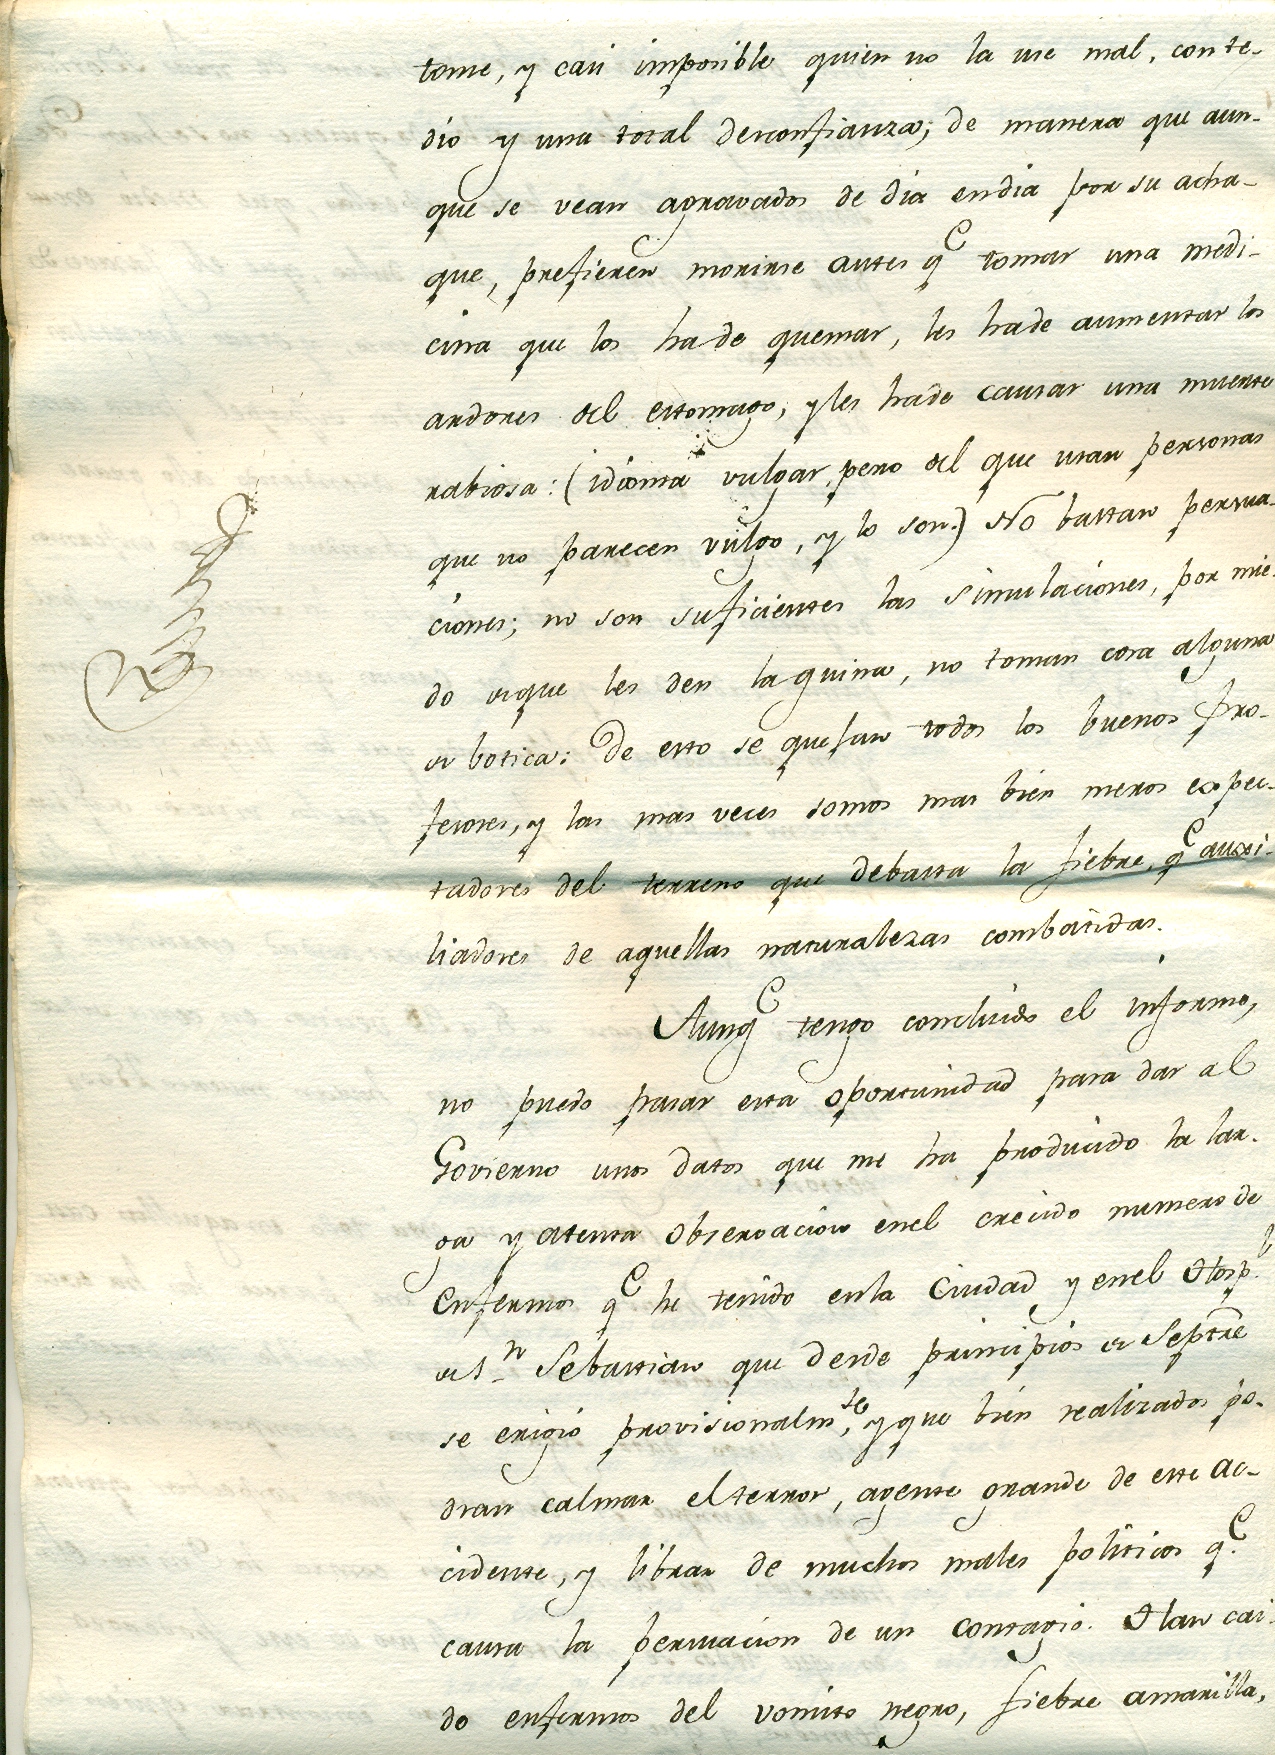 tome, y casi imposible quien no la use mal, con te-
dio y una total desconfianza; de manera que aun-
que se vean agravados de dia endia por su acha-
que, prefieren morirse antes q.e tomar una medi-
cina que los hade quemar, les hade aumentar los
ardores del estomago, y les hade causar una muerte
rabiosa: (idioma vulgar, pero del que usan personas
que no parecen vulgo, y lo son.) No bastan persua-
ciones; no son suficientes las simulaciones, por mie-
do de que les den la quina, no toman cosa alguna
de botica: De esto se quejan todos los buenos Pro-
fesores, y las mas veces somos mas bien meros expec-
tadores del terreno que debasta la fiebre, q.e auxi-
liadores de aquellas naturalezas combatidas.
Aunq.e tengo concluido el informe,
no puedo pasar esta oportunidad para dar al
Govierno unos datos que me ha producido la lar-
ga y atenta observacion enel crecido numero de
Enfermos q.e he tenido enla Ciudad y enel Hosp.l
de S.n Sebastian que desde principios de Septre
se erigió provisionalm.te, y que bien realizados po-
dran calmar el terror, agente grande de este ac-
cidente, y librar de muchos males politicos q.e
causa la persuacion de un contagio. Han cai-
do enfermos del vomito negro, fiebre amarilla,